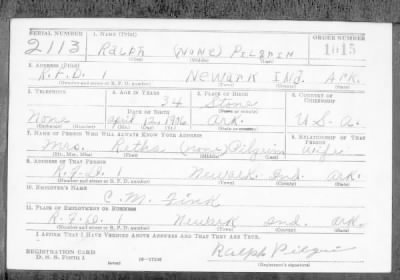 SERIAL NUMBER 1. NAME (Print) ORDER NUMBER
2113 RALPH (NONE) PILGRIM 1015
(First) (Middle) (Last)
2. ADDRESS (Print)
R.F.D. 1 NEWARK IND. ARK.
(Number and street or R. F. D. number) (Town) (County) (State)
3. TELEPHONE 4. AGE IN YEARS 5. PLACE OF BIRTH 6. COUNTRY OF CITIZENSHIP
34 Stone
None DATE OF BIRTH (Town or county)
April 12 1906 Ark. U.S.A.
(Exchange) (Number) (Mo.) (Day) (Yr.) (State or country)
7. NAME OF PERSON WHO WILL ALWAYS KNOW YOUR ADDRESS 8. RELATIONSHIP OF THAT PERSON
Mrs. (none) Pilgrim wife
(Mr., Mrs., Miss) (First) (Middle) (Last)
9. ADDRESS OF THAT PERSON
R.F.D. 1 Newark Ind. ark.
(Number and street or R. F. D. number) (Town) (County) (State)
10. EMPLOYER'S NAME
C. M. Fink
11. PLACE OF EMPLOYMENT OR BUSINESS
R.F.D. 1 Newark Ind. ark.
(Number and street or R. F. D. number) (Town) (County) (State)
I AFFIRM THAT I HAVE VERIFIED ABOVE ANSWERS AND THAT THEY ARE TRUE.
REGISTRATION CARD
D. S. S. FORM 1 (over) 16-17105 Ralph Pilgrim
(Registrant's signature)